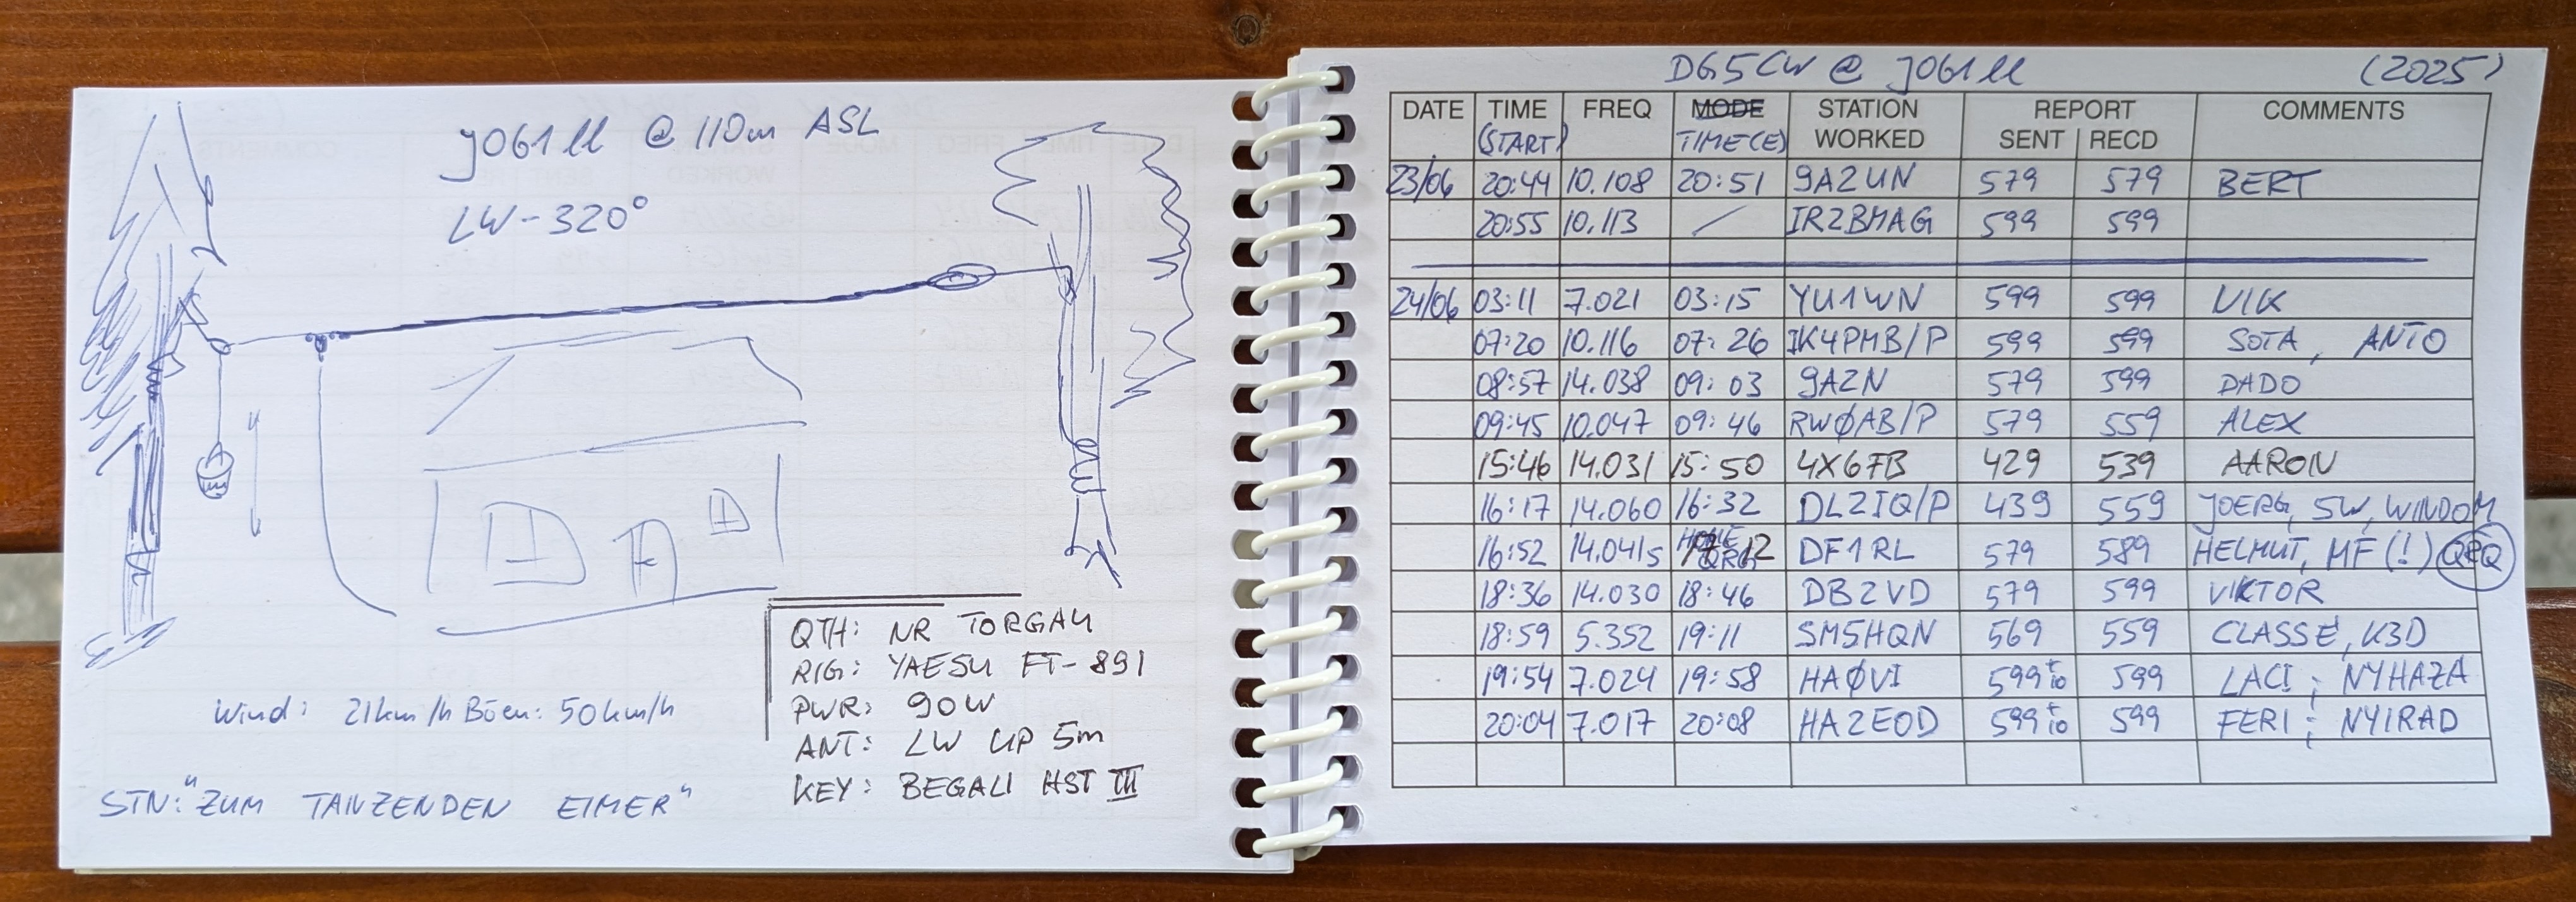 JO61ll @ 110m ASL
LW-320°
QTH: NR TORGAU
RIG: YAESU FT-891
PWR: 90W
ANT: LW UP 5m
KEY: BEGALI HST III
Wind: 21km/h Böen: 50km/h
STN: "ZUM TANZENDEN EIMER"
DG5CW @ JO61ll (2025)
DATE TIME (START) FREQ MODE TIME(E) STATION WORKED REPORT SENT RECD COMMENTS
23/06 20:44 10.108 20:51 9A2UN 579 579 BERT
20:55 10.113 / IR2BMAG 599 599
24/06 03:11 7.021 03:15 YU1WN 599 599 VIK
07:20 10.116 07:26 IK4PMB/P 599 599 SOTA, ANTO
08:57 14.038 09:03 9A2N 579 599 DADO
09:45 10.047 09:46 RWØAB/P 579 559 ALEX
15:46 14.031 15:50 4X6FB 429 539 AARON
16:17 14.060 16:32 DL2IQ/P 439 559 JOERG, 5W, WINDOM
16:52 14.0415 DF1RL 579 589 HELMUT, MF(!) QRQ
18:36 14.030 18:46 DB2VD 579 599 VIKTOR
18:59 5.352 19:11 SM5HQN 569 559 CLASSE, K3D
19:54 7.024 19:58 HAØVI 599+10 599 LACI; NYHAZA
20:04 7.017 20:08 HA2EOD 599+10 599 FERI; NYIRAD